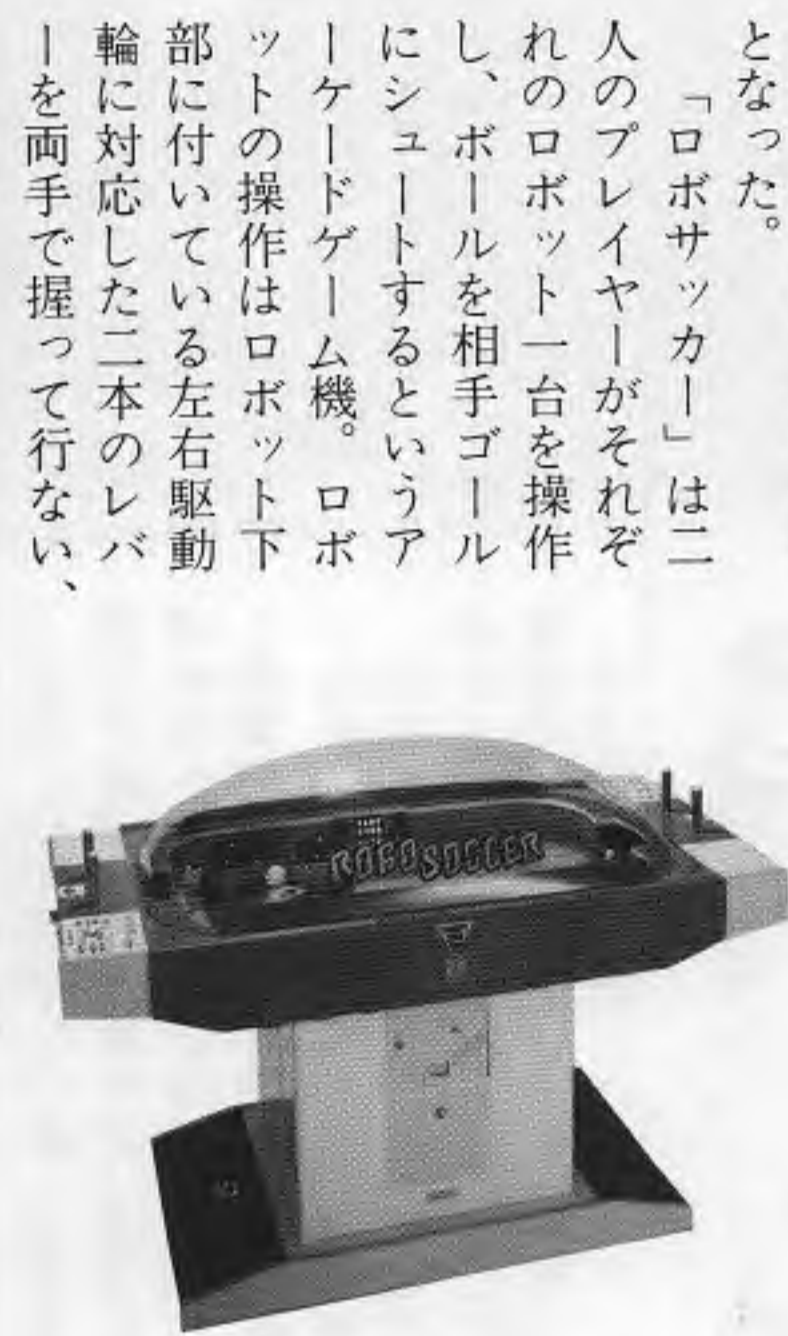 となった。
「ロボサッカー」は二
人のプレイヤーがそれぞ
れのロボット一台を操作
し、ボールを相手ゴール
にシュートするというア
ーケードゲーム機。ロボ
ットの操作はロボット下
部に付いている左右駆動
輪に対応した二本のレバ
ーを両手で握って行ない、
ROBO SOCCER